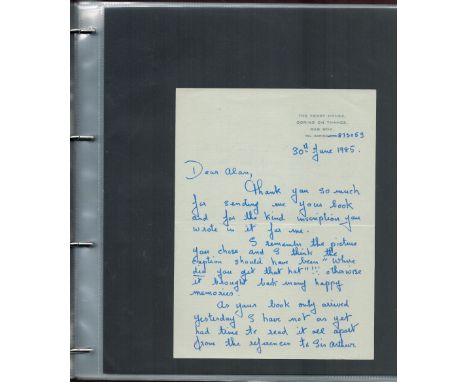 THE FERRY HOUSE,
GORING ON THAMES,
RG8 9DX.
TEL. GORING 873053
30th June 1985.
Dear Alan,
Thank you so much
for sending me your book
and for the kind inscription you
wrote in it for me.
I remember the picture
you chose and I think the
caption should have been "Where
did you get that hat"!!! otherwise
it brought back many happy
memories.
As your book only arrived
yesterday I have not as yet
had time to read it all apart
from the references to Sir Arthur.